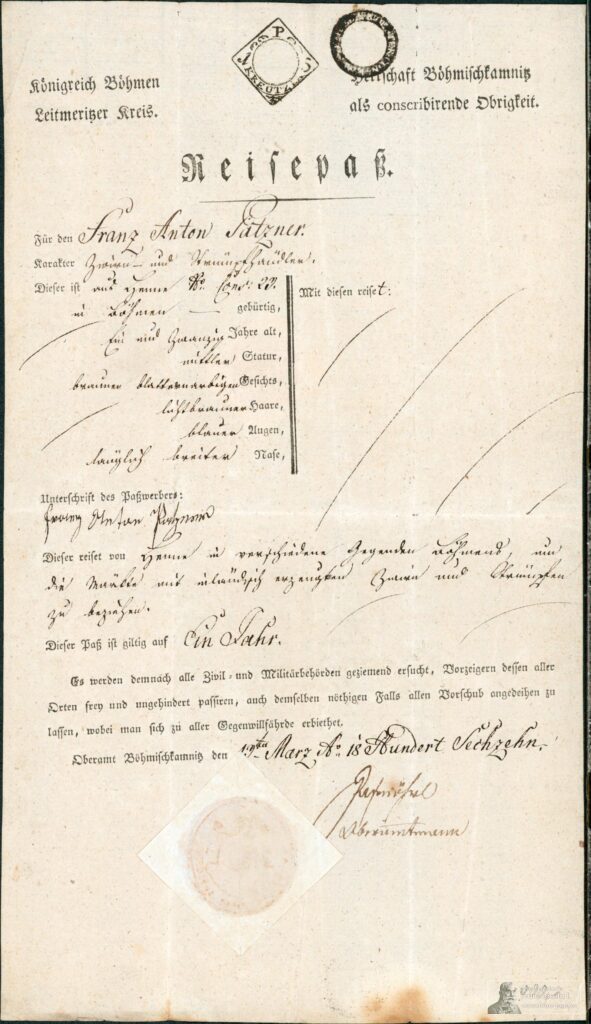 P
15
KREUTZ.
Königreich Böhmen
Leitmeritzer Kreis.
Herrschaft Böhmischkamnitz
als conscribirende Obrigkeit.
Reisepaß.
Für den Franz Anton
Karakter Zwirn- und Strümpfhändler.
Dieser ist aus Henne No. Cons: 23.
in Böhmen — gebürtig,
Ein und Zwanzig Jahre alt,
mittler Statur,
brauner blatternarbigen Gesichts,
lichtbrauner Haare,
blauer Augen,
länglich breiter Nase,
Mit diesen reiset:
Unterschrift des Paßwerbers:
Franz Anton
Dieser reiset von Henne in verschiedene Gegenden Böhmens, um
die Märkte mit inländisch erzeugten Zwirn und Strümpfen
zu beziehen.
Dieser Paß ist giltig auf Ein Jahr.
Es werden demnach alle Zivil- und Militärbehörden geziemend ersucht, Vorzeigern dessen aller
Orten frey und ungehindert passiren, auch demselben nöthigen Falls allen Vorschub angedeihen zu
lassen, wobei man sich zu aller Gegenwillfährde erbiethet.
Oberamt Böhmischkamnitz den März Ao. 18 Hundert Sechzehn.
Oberamtmann